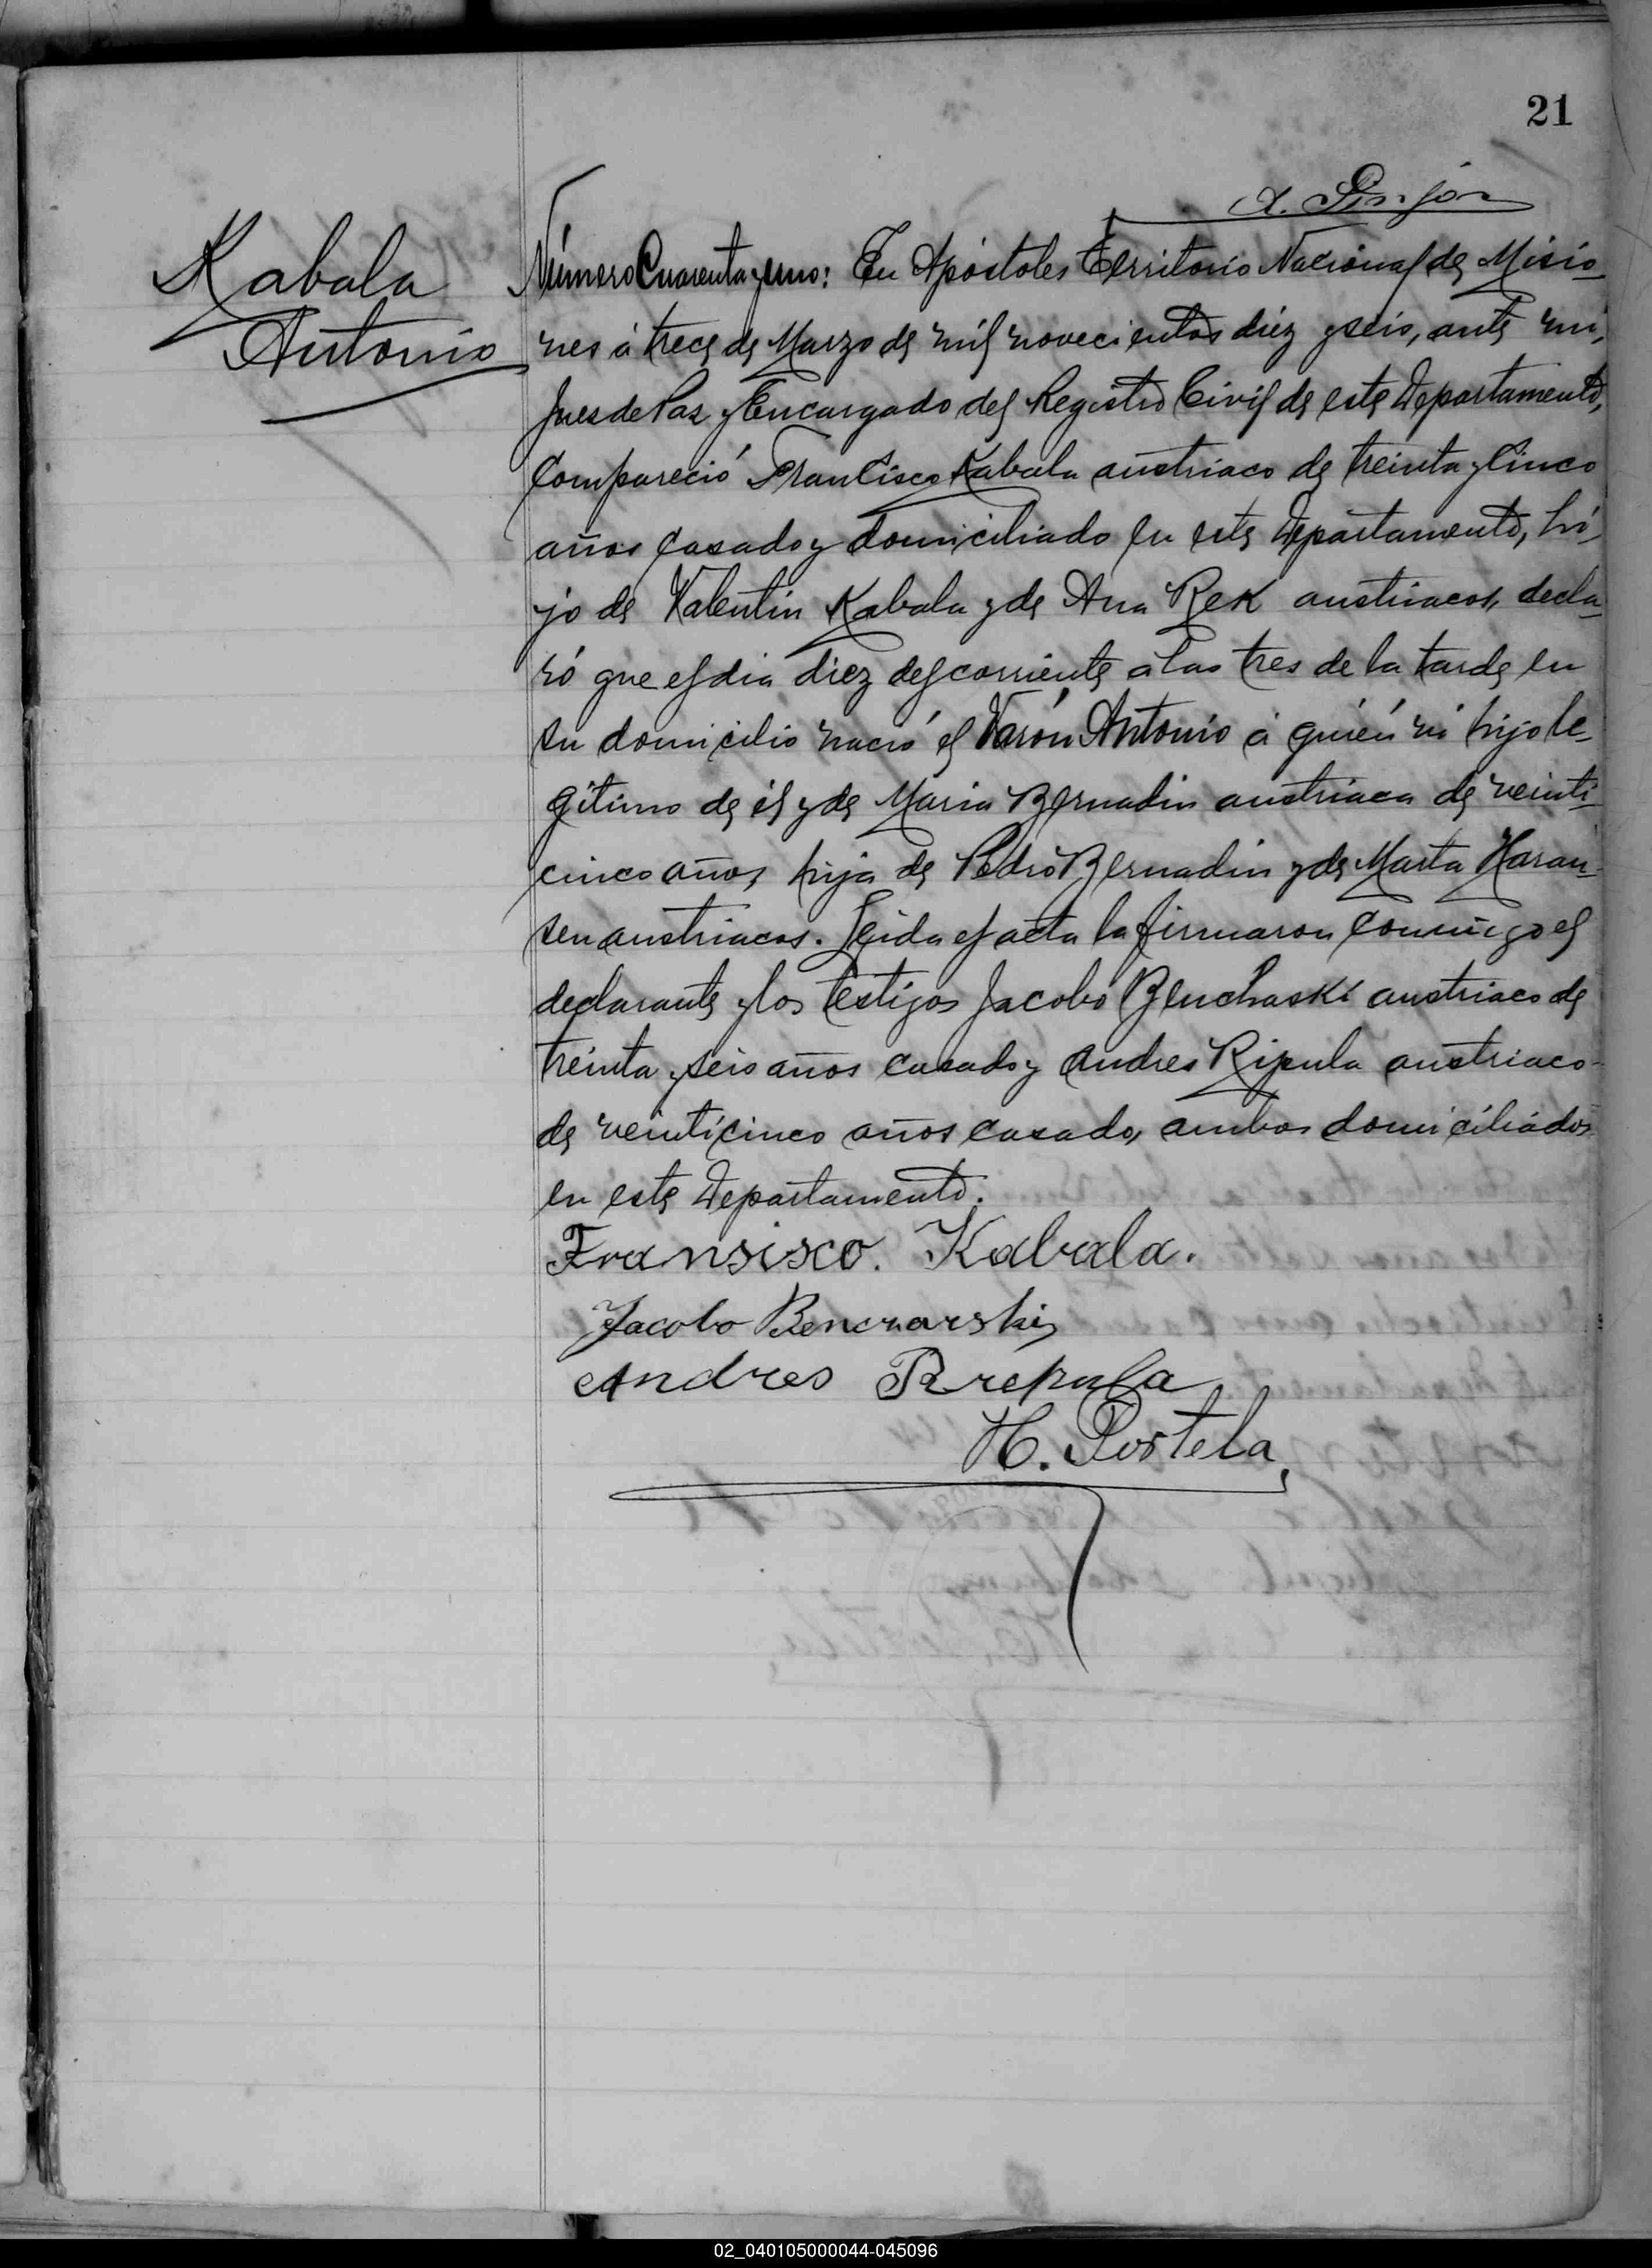 21
A. Pinjón
Kabala
Antonio
Número Cuarenta y uno: En Apóstoles Territorio Nacional de Misio-
nes á trece de Marzo de mil novecientos diez y seis, ante mi,
Jues de Paz y Encargado del Registro Civil de este Departamento,
Compareció Francisco Kabala austriaco de treinta y Cinco
años Casado y domiciliado en este Departamento, hi-
jo de Valentin Kabala y de Ana Rek austriacos, decla-
ró que el dia diez del corriente á las tres de la tarde en
su domicilio nació el Varón Antonio á quién ví hijo le-
gitimo de él y de Maria Bernadin austriaca de veinti-
cinco años, hija de Pedro Bernadin y de Marta Haran-
sen austriacos. Leida el acta la firmaron conmigo el
declarante y los testigos Jacobo Benchaski austriaco de
treinta y seis años casado y Andres Ripula austriaco
de veinticinco años casado, ambos domiciliados
en este Departamento.
Fransisco. Kabala.
Jacobo Benczarski
Andres Rrepula
H. Portela,
02_040105000044-045096